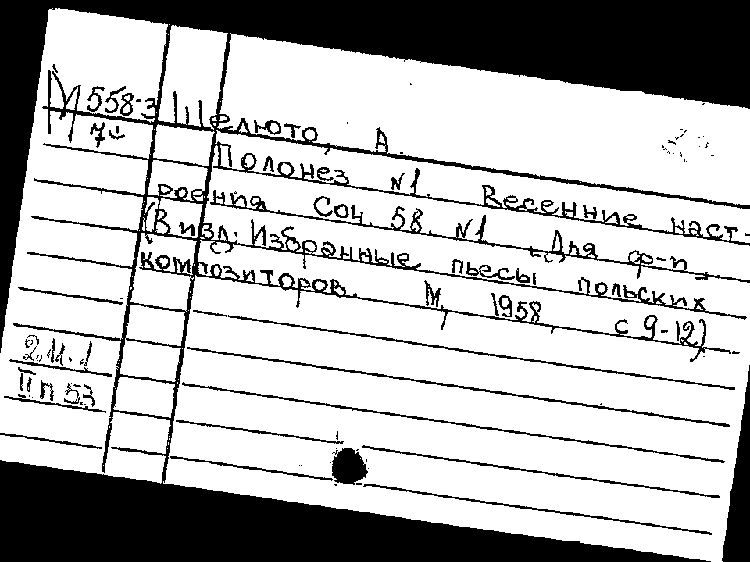 М 558-3 Шелюто, А.
7
Полонез N1. Весенние наст-
роения. Соч. 58. N1. Для ф-п.
(В изд. Избранные пьесы польских
композиторов. М, 1958, с 9-12)
2.11.1
II п 53